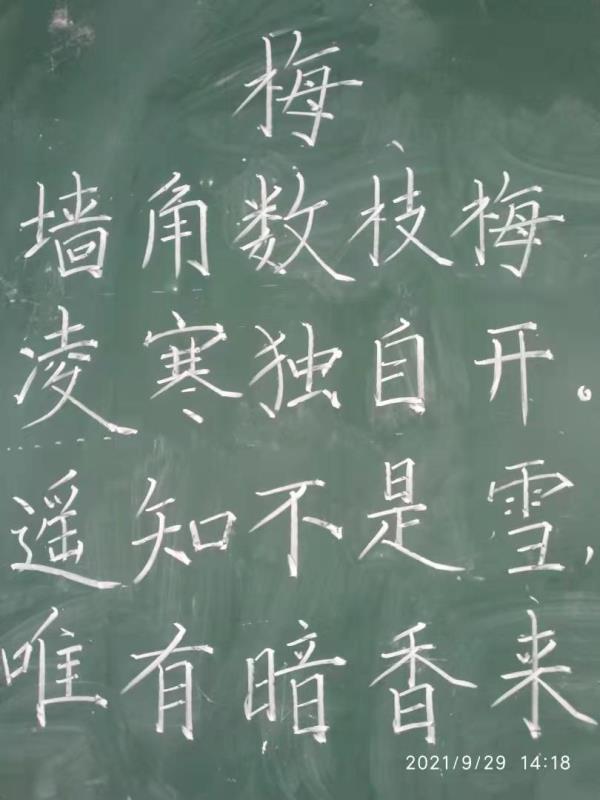 梅
墙角数枝梅
凌寒独自开。
遥知不是雪,
唯有暗香来
2021/9/29 14:18